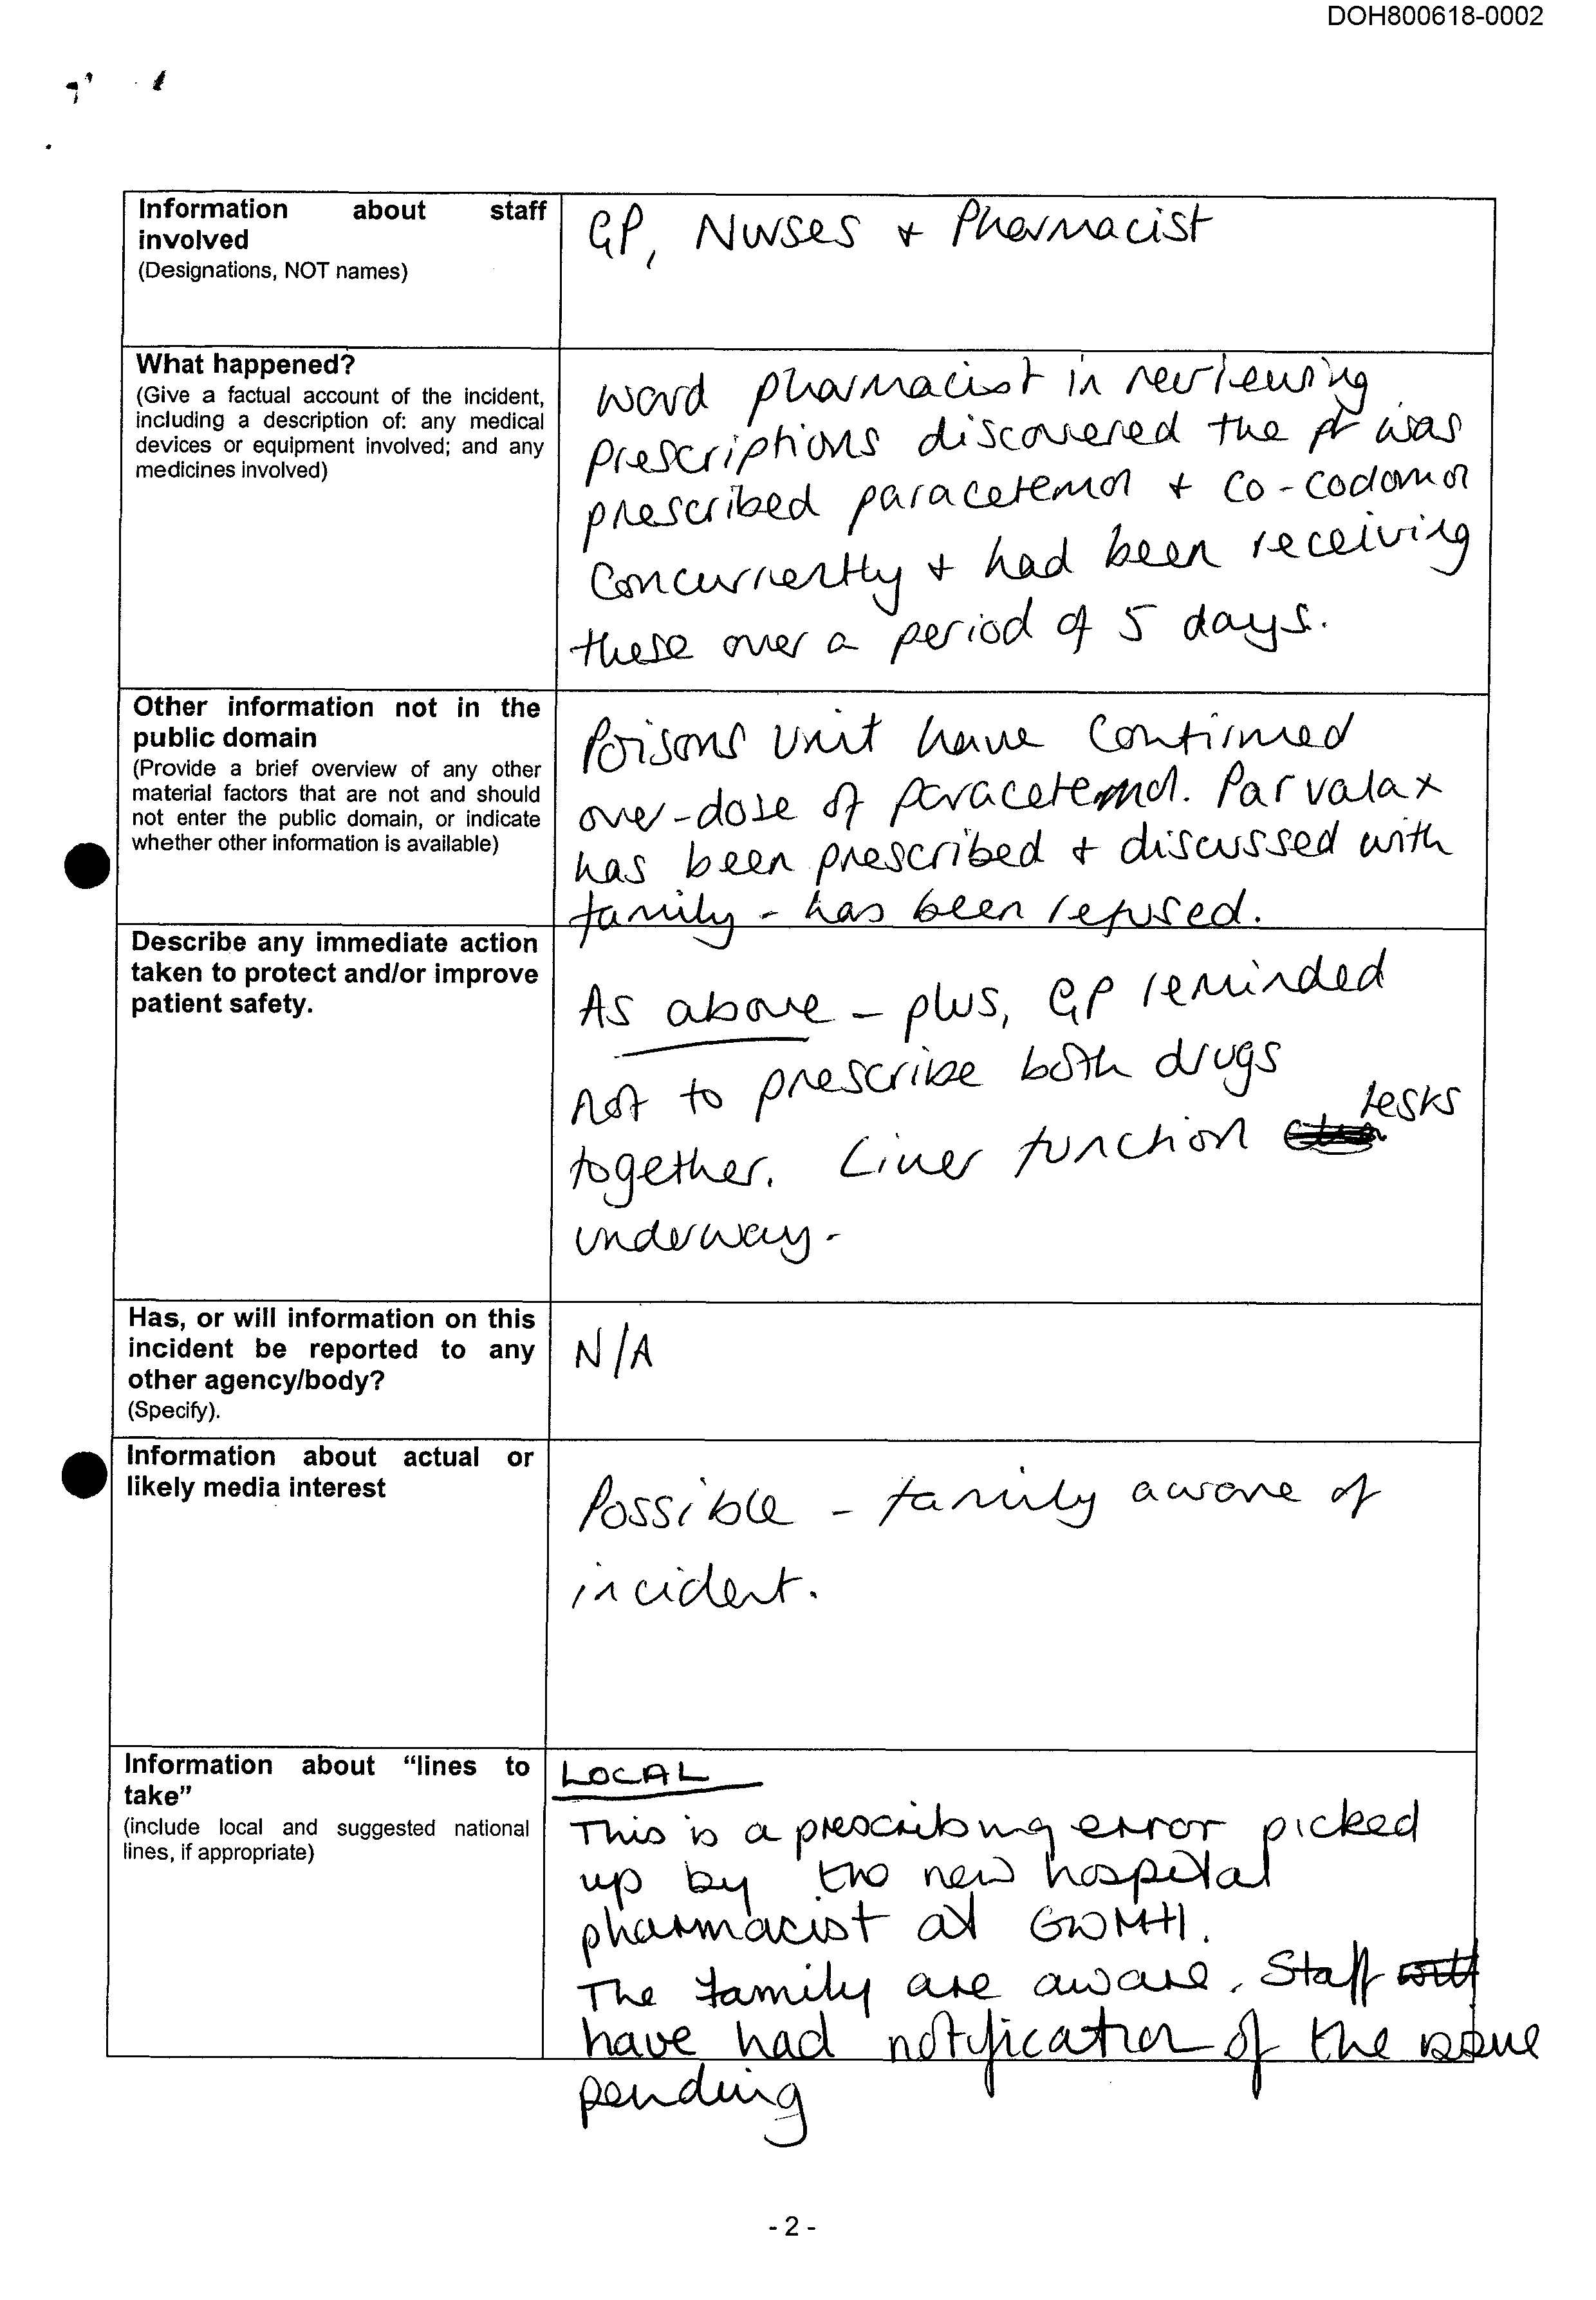 DOH800618-0002
Information about staff
involved
(Designations, NOT names)
GP, Nurses + Pharmacist
What happened?
(Give a factual account of the incident,
including a description of: any medical
devices or equipment involved; and any
medicines involved)
Ward pharmacist in reviewing
prescriptions discovered the pt was
prescribed paracetemol + co-codomol
concurrently + had been receiving
these over a period of 5 days.
Other information not in the
public domain
(Provide a brief overview of any other
material factors that are not and should
not enter the public domain, or indicate
whether other information is available)
Poisons Unit have confirmed
over-dose of paracetemol. Parvalax
has been prescribed + discussed with
family - has been refused.
Describe any immediate action
taken to protect and/or improve
patient safety.
As above - plus, GP reminded
not to prescribe both drugs
together. Liver function tests
underway -
Has, or will information on this
incident be reported to any
other agency/body?
(Specify).
N/A
Information about actual or
likely media interest
Possible - family aware of
incident.
Information about "lines to
take"
(include local and suggested national
lines, if appropriate)
LOCAL
This is a prescribing error picked
up by the new hospital
pharmacist at GWMH.
The family are aware. Staff will
have had notification of the issue
pending
- 2 -